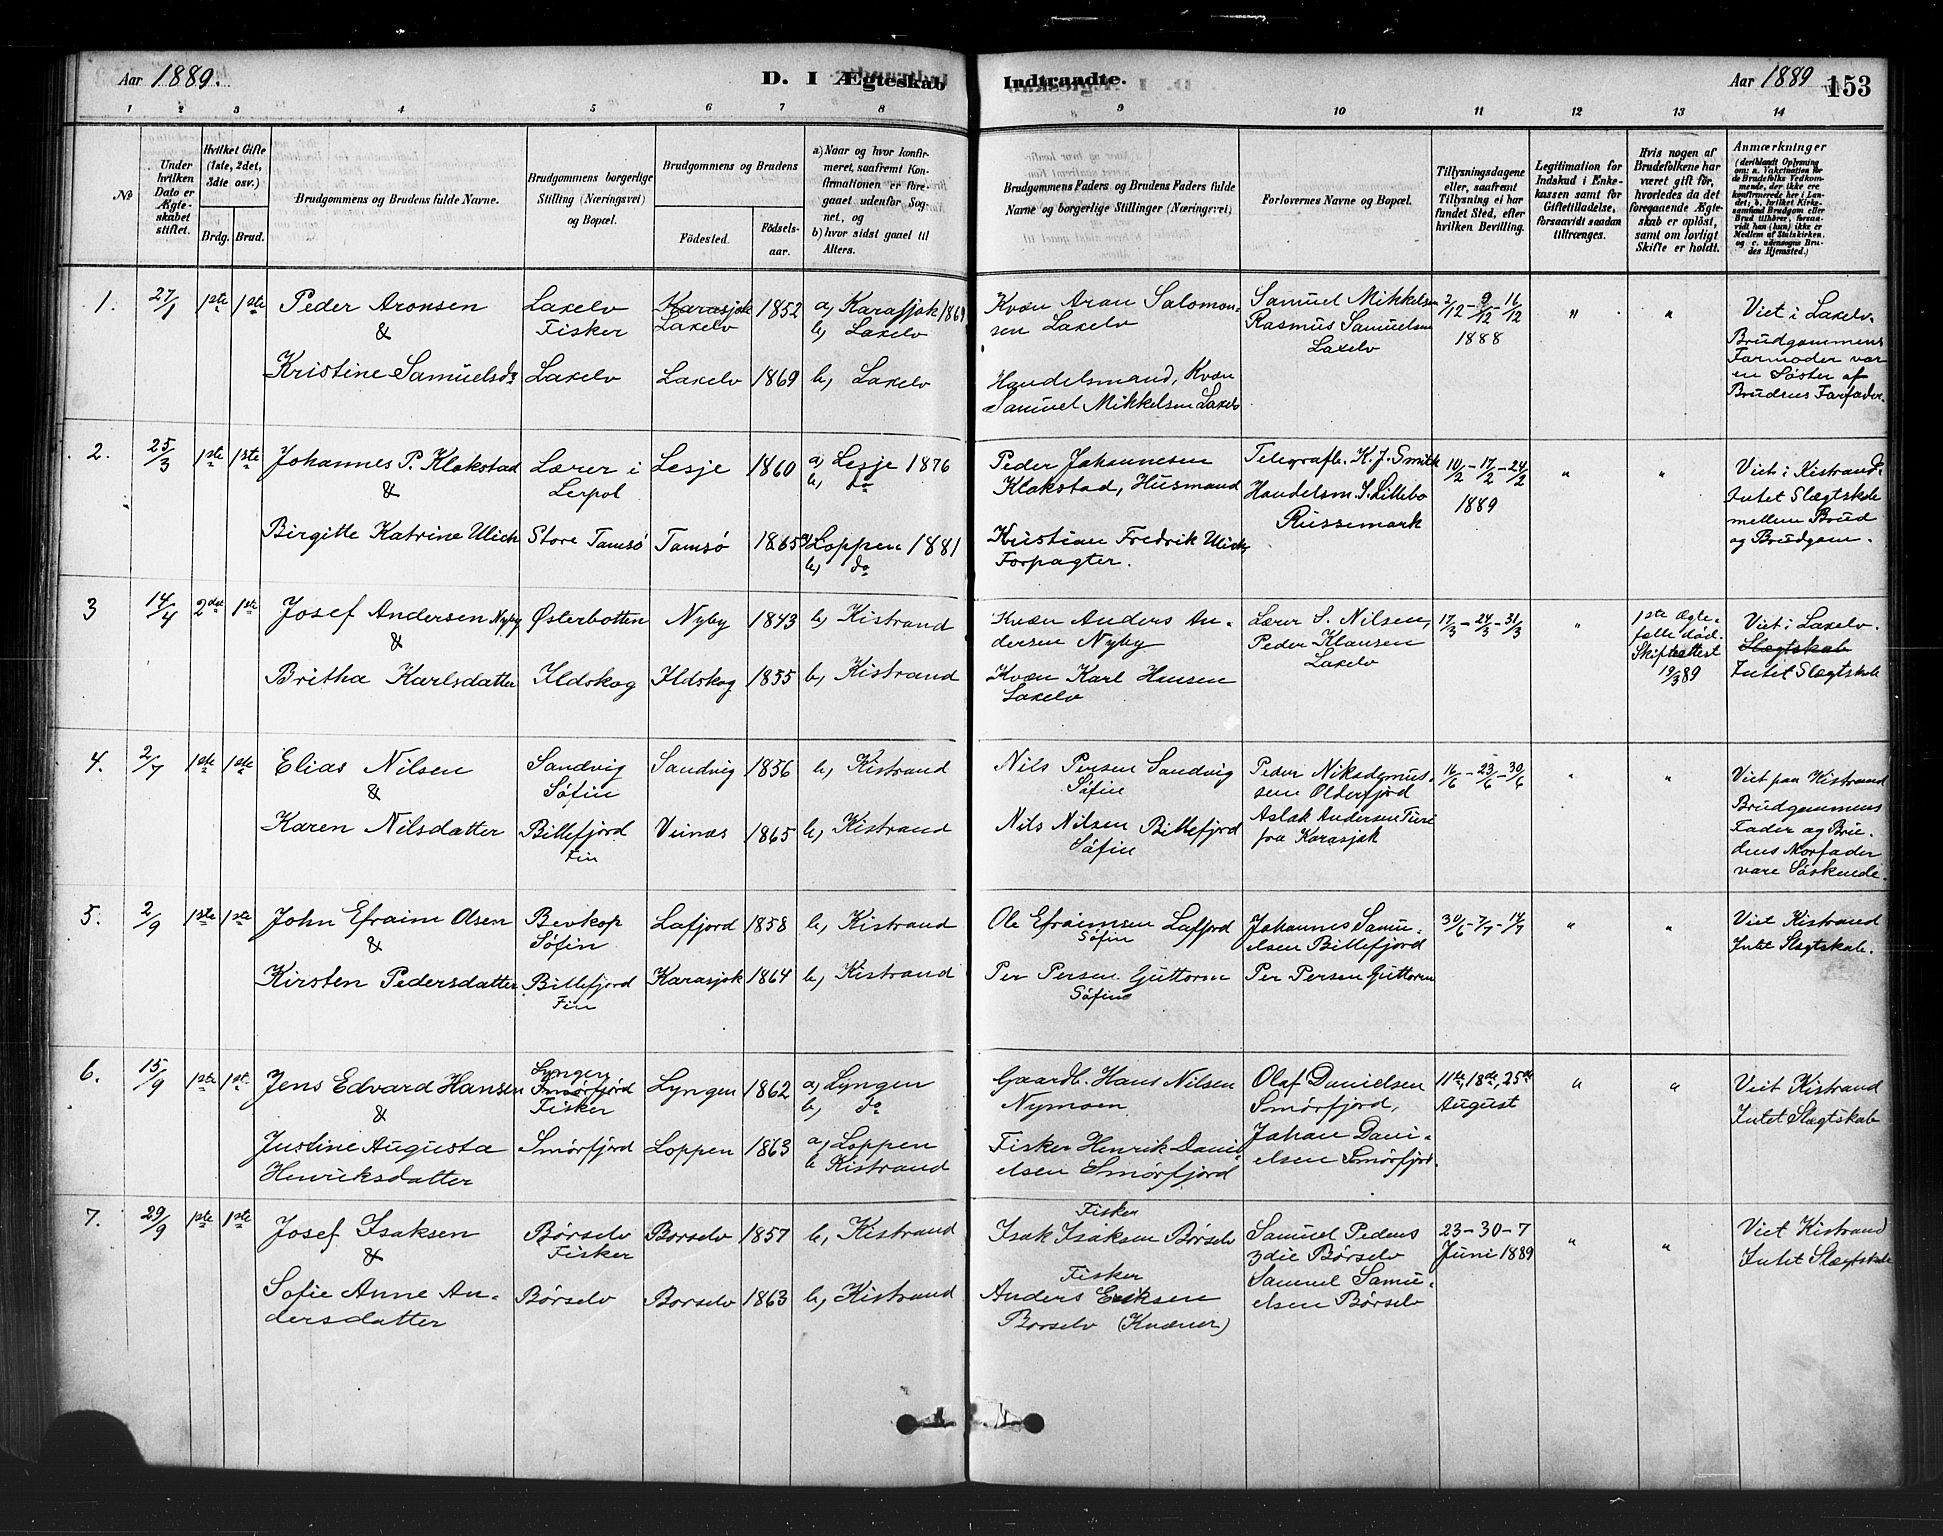 Aar 1889.
D. I Ægteskab
Indtraadte.
Aar 1889
153
1 2 3 4 5 6 7 8 9 10 11 12 13 14
No
Under hvilken Dato er Ægteskabet stiftet.
Hvilket Gifte (1ste, 2det, 3die osv.)
Brdg. Brud.
Brudgommens og Brudens fulde Navne.
Brudgommens borgerlige Stilling (Næringsvei) og Bopæl.
Brudgommens og Brudens
Födested.
Födselsaar.
a) Naar og hvor konfirmeret, saafremt Konfirmationen er foregaaet udenför Sognet, og
b) hvor sidst gaaet til Alters.
Brudgommens Faders og Brudens Faders fulde Navne og borgerlige Stillinger (Næringsvei)
Forlovernes Navne og Bopæl.
Tillysningsdagene eller, saafremt Tillysning ei har fundet Sted, efter hvilken Bevilling.
Legitimation for Indskud i Enkekassen samt for Giftetilladelse, forsaavidt saadan tiltrænges.
Hvis nogen af Brudefolkene har været gift för, hvorledes da det foregaaende Ægteskab er oplöst, samt om lovligt Skifte er holdt.
Anmærkninger
(deriblandt Oplysning om: a. Vaccination for de Brudefolks Vedkommende, der ikke ere konfirmerede her i Landet; b. hvilket Kirkesamfund Brudgom eller Brud tilhörer, forsavidt han (hun) ikke er Medlem af Statskirken, og c. udensogns Brudes Hjemsted.)
1. 27/1 1ste 1ste Peder Aronsen
&
Kristine Samuelsdr
Laxelv
Fisker
Laxelv
Karasjok
Laxelv
Laxelv
1852
1869
a, Karasjok 1869
b, Laxelv
b, Laxelv
Kvæn Aron Salomonsen Laxelv
Handelsmand, Kvæn
Samuel Mikkelsen Laxelv
Samuel Mikkelsen
Rasmus Samuelsen
Laxelv
2/12 - 9/12 - 16/12
1888
" "
Viet i Laxelv.
Brudgommens
Farmoder var
en Söster af
Brudens Farfader.
2. 25/3 1ste 1ste Johannes P. Klakstad
&
Birgitte Katrine Ulich
Lærer i
Lerpol
Store Tamsø
Lesje
Tamsø
1860
1865
a, Lesje 1876
b, do
a, Loppen 1881
b, do
Peder Johannesen
Klakstad, Husmand
Kristian Fredrik Ulich
Forpagter.
Telegrafb. K. J. Smith
Handelsm. J. Lillebo
Russemark
10/2 - 17/2 - 24/2
1889
" "
Viet i Kistrand.
Intet Slægtskab
mellem Brud
og Brudgom.
3 14/4 2det 1ste Josef Andersen Nyby
&
Britha Karlsdatter
Østerbotten
Ildskog
Nyby
Ildskog
1843
1855
b, Kistrand
b, Kistrand
Kvæn Anders Andersen Nyby
Kvæn Karl Hansen
Laxelv
Lærer S. Nilsen,
Peder Klausen
Laxelv
17/3 - 24/3 - 31/3
"
1ste Ægtefælle död.
Skifteattest
19/3 89
Viet i Laxelv.
Slægtskab
Intet Slægtskab
4. 2/7 1ste 1ste Elias Nilsen
&
Karen Nilsdatter
Sandvig
Söfin
Billefjord
Fin
Sandvig
Veinæs
1856
1865
b, Kistrand
b, Kistrand
Nils Persen Sandvig
Söfin
Nils Nilsen Billefjord
Söfin
Olderfjord
Aslak Andersen
fra Karasjok
16/6 - 23/6 - 30/6
" "
Viet paa Kistrand
Brudgommens
Fader og Brudens Morfader
vare Söskende.
5. 2/9 1ste 1ste John Efraim Olsen
&
Kirsten Pedersdatter
Bevkop
Söfin
Billefjord
Fin
Lafjord
Karasjok
1858
1864
b, Kistrand
b, Kistrand
Ole Efraimsen Lafjord
Söfin
Per Persen Guttorm
Söfin
Johannes Samuelsen Billefjord
Per Persen Guttorm
30/6 - 7/7 - 14/7
" "
Viet Kistrand
Intet Slægtskab.
6. 15/9 1ste 1st. Jens Edvard Hansen
&
Justine Augusta
Henriksdatter
Lyngen
Smörfjord
Fisker
Smörfjord
Lyngen
Loppen
1862
1863
a, Lyngen
b, do
a, Loppen
b Kistrand
Gaardb. Hans Nilsen
Nymoen.
Fisker Henrik Danielsen Smörfjord
Olaf Danielsen
Smörfjord,
Johan Danielsen Smörfjord.
11te, 18de, 25de
August
" "
Viet Kistrand
Intet Slægtskab
7. 29/9 1ste 1ste Josef Isaksen
&
Sofie Anne Andersdatter
Børselv
Fisker
Børselv
Børselv
Børselv
1857
1863
b, Kistrand
b, Kistrand
Fisker
Isak Isaksen Børselv
Fisker
Anders Eriksen
Børselv (Kvæner)
Samuel Peders
3die Børselv
Samuel Samuelsen Børselv
23 - 30 - 7
Juni 1889
" "
Viet Kistrand
Intet Slægtskab